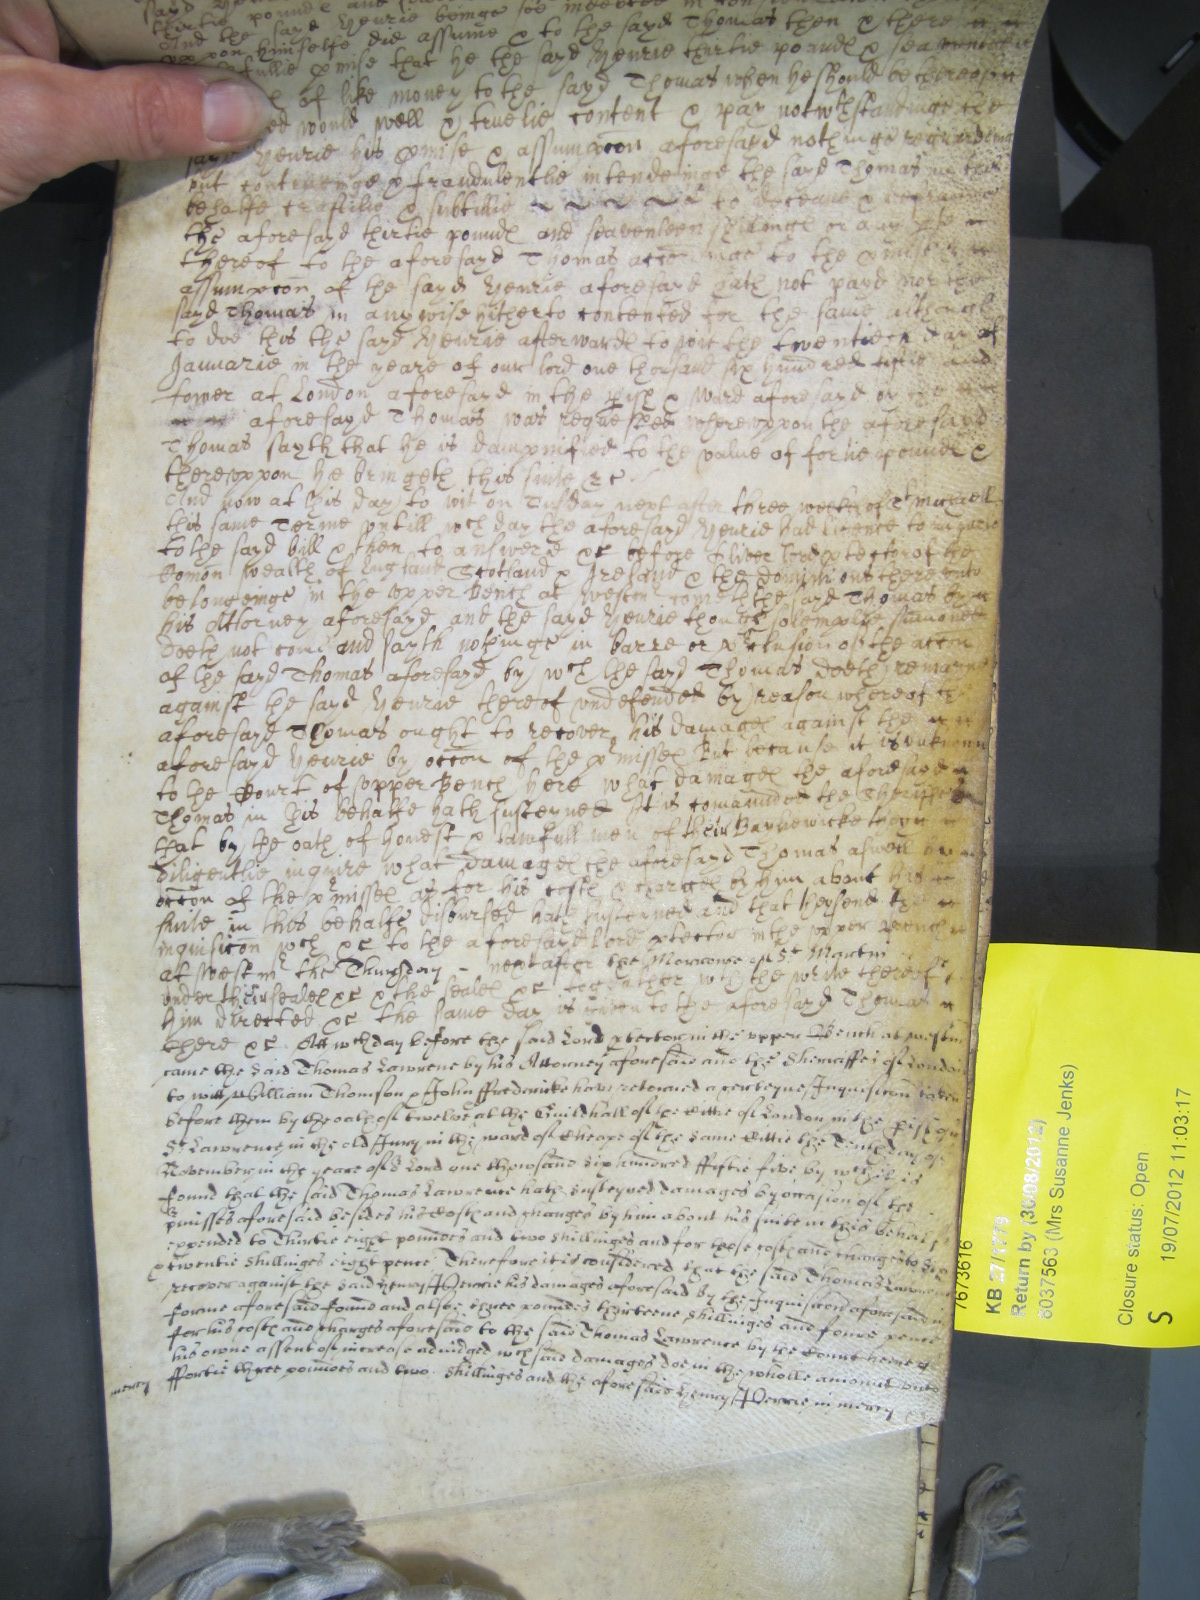 thirtie pounds and
And the sayd Henrie beinge soe indebted in consideracon
uppon himselfe did assume & to the sayd Thomas then & there
faithfullie pmise that he the sayd Henrie thirtie pounds & seaventeene
of like money to the sayd Thomas when he should be thereupon
would well & truelie content & pay notwthstandinge the
sayd Henrie his pmise & assumpcon aforesayd nothinge regardeing
but contriveinge & fraudulentlie intendeinge the sayd Thomas in this
behalfe craftilie & subtillie to deceave & defraud
the aforesayd thirtie pounds and seaventeen shillings or any
thereof to the aforesayd Thomas according to the pmise
assumpcon of the sayd Henrie aforesayd hath not payd nor the
sayd Thomas in any wise hitherto contented for the same although
to doe this the sayd Henrie afterwards to wit the twentieth day of
Januarie in the yeare of our lord one thousand six hundred fiftie and
fower at London aforesayd in the pish & Ward aforesayd by the
aforesayd Thomas was requested whereuppon the aforesayd
Thomas sayth that he is dampnified to the value of fortie pounds &
thereuppon he bringeth this suite &c
And now at this day to wit on Tusday next after three weeks of St Michaell
this same Terme untill wch day the aforesayd Henrie had licence to imparle
to the sayd bill & then to answere &c before Oliver lord ptector of the
Comon wealth of England Scotland & Ireland & the dominions thereunto
belongeinge in the upper Bench at Westmr cometh the sayd Thomas by
his Attorney aforesayd and the sayd Henrie though solempnlye sumoned
doeth not come and sayth nothinge in barre or pclusion of the accon
of the sayd Thomas aforesayd by wch the sayd Thomas doeth remayne
against the sayd Henrie thereof undefended by reason whereof the
aforesayd Thomas ought to recover his damages against the
aforesayd Henrie by occon of the pmisses But because it is unknown
to the Court of upper Bench here what damages the aforesayd
Thomas in this behalfe hath susteyned It is comaunded the Sheriffes
that by the oath of honest & lawfull men of their Baylewicke they
diligentlie inquire what damages the aforesayd Thomas aswell by
occon of the pmisses as for his costs & charges by him about his
suite in this behalfe disbursed hath susteyned and that they send the
inquisicon wch &c to the aforesayd Lord ptector in the upper Bench
at Westmr the Thursday next after the Morrowe of St Martin
under their seales &c & the seales &c togeather wth the write thereof
him directed &c the same day is given to the aforesayd Thomas
there &c. Att wch day before the said Lord ptector in the upper Bench at Westm
came the said Thomas Lawrence by his Attorney aforesaid and the Sherriffes of London
to witt William Thomson & John Fredericke have retorned a certeyne Inquisicon taken
before them by the oath of twelve at the Guildhall of the Cittie of London in the pish of
St Lawrence in the old Jury in the ward of Cheape of the same Cittie the Tenth day of
November in the yeare of or Lord one thowsand six hundred fiftie five by wch it is
found that the said Thomas Lawrence hath susteyned damages by occasion of the
pmisses aforesaid besides his Costs and charges by him about his suite in this behalf
expended to Thirtie eight pounds and two shillinges and for those costs and charges to
twentie shillinges eight pence Therefore it is considered that the said Thomas Lawrence
recover against the said Henry Perrie his damages aforesaid by the Inquisicon aforesaid in
forme aforesaid found and alsoe three poundes thirteene shillinges and foure pence
for his costs and charges aforesaid to the said Thomas Lawrence by the Court heere of
his owne assent of increase adiudged wch said damages doe in the wholle amount unto
ffortie three poundes and two shillinges and the aforesaid Henry Perrie in mercy &c
mercy
7673616
KB 27/1779
Return by (30/08/2012)
6037563 (Mrs Susanne Jenks)
Closure status: Open
S 19/07/2012 11:03:17